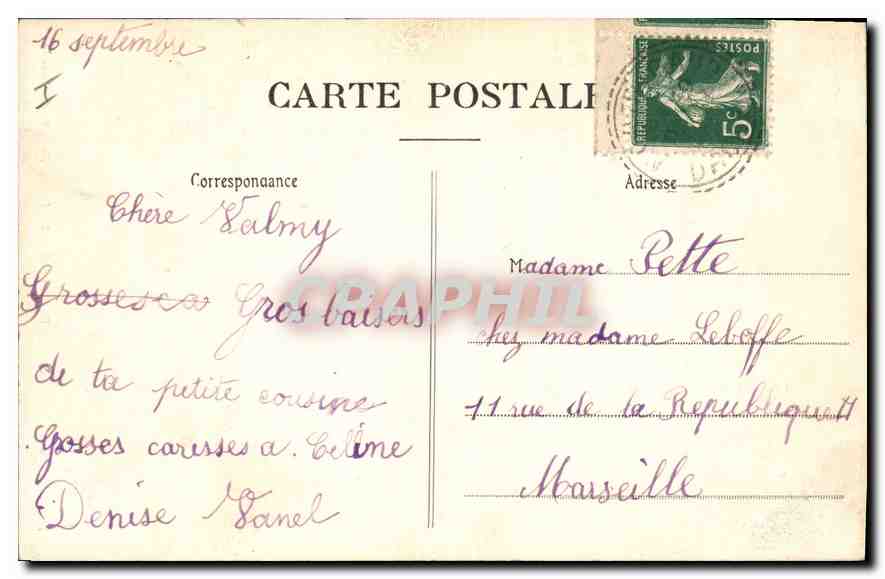 16 septembre
I
CARTE POSTALE
REPUBLIQUE FRANÇAISE
POSTES
5c
Correspondance
Adresse
Chère Valmy
Grosses ca Gros baisers
de ta petite cousine
Gosses caresses a Celine
Denise Vanel
Madame Pette
chez madame Leboffe
11 rue de la Republique
Marseille
CPAPHIL